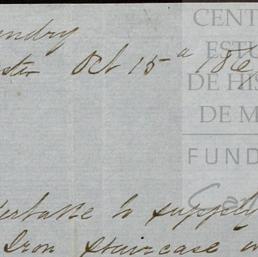 undry
ster Oct 15th 186
CENT
EST
DE HIS
DE M
FUND
ertake to supply
Iron Staircase